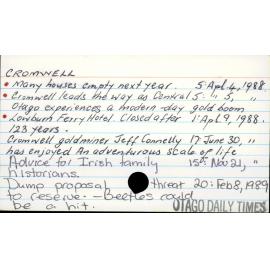 CROMWELL
• Many houses empty next year. 5: Apl. 4, 1988.
• Cromwell leads the way as Central 5: " 5, "
Otago experiences a modern-day gold boom
• Lowburn Ferry Hotel. Closed after 1: Apl 9, 1988.
123 years.
Cromwell goldminer Jeff Connelly 17 June 30, "
has enjoyed An adventurous scale of life
Advice for Irish family 15: Nov 21, "
historians.
Dump proposal threat 20: Feb 8, 1989
to reserve. - Beetles could
be a hit.
OTAGO DAILY TIMES